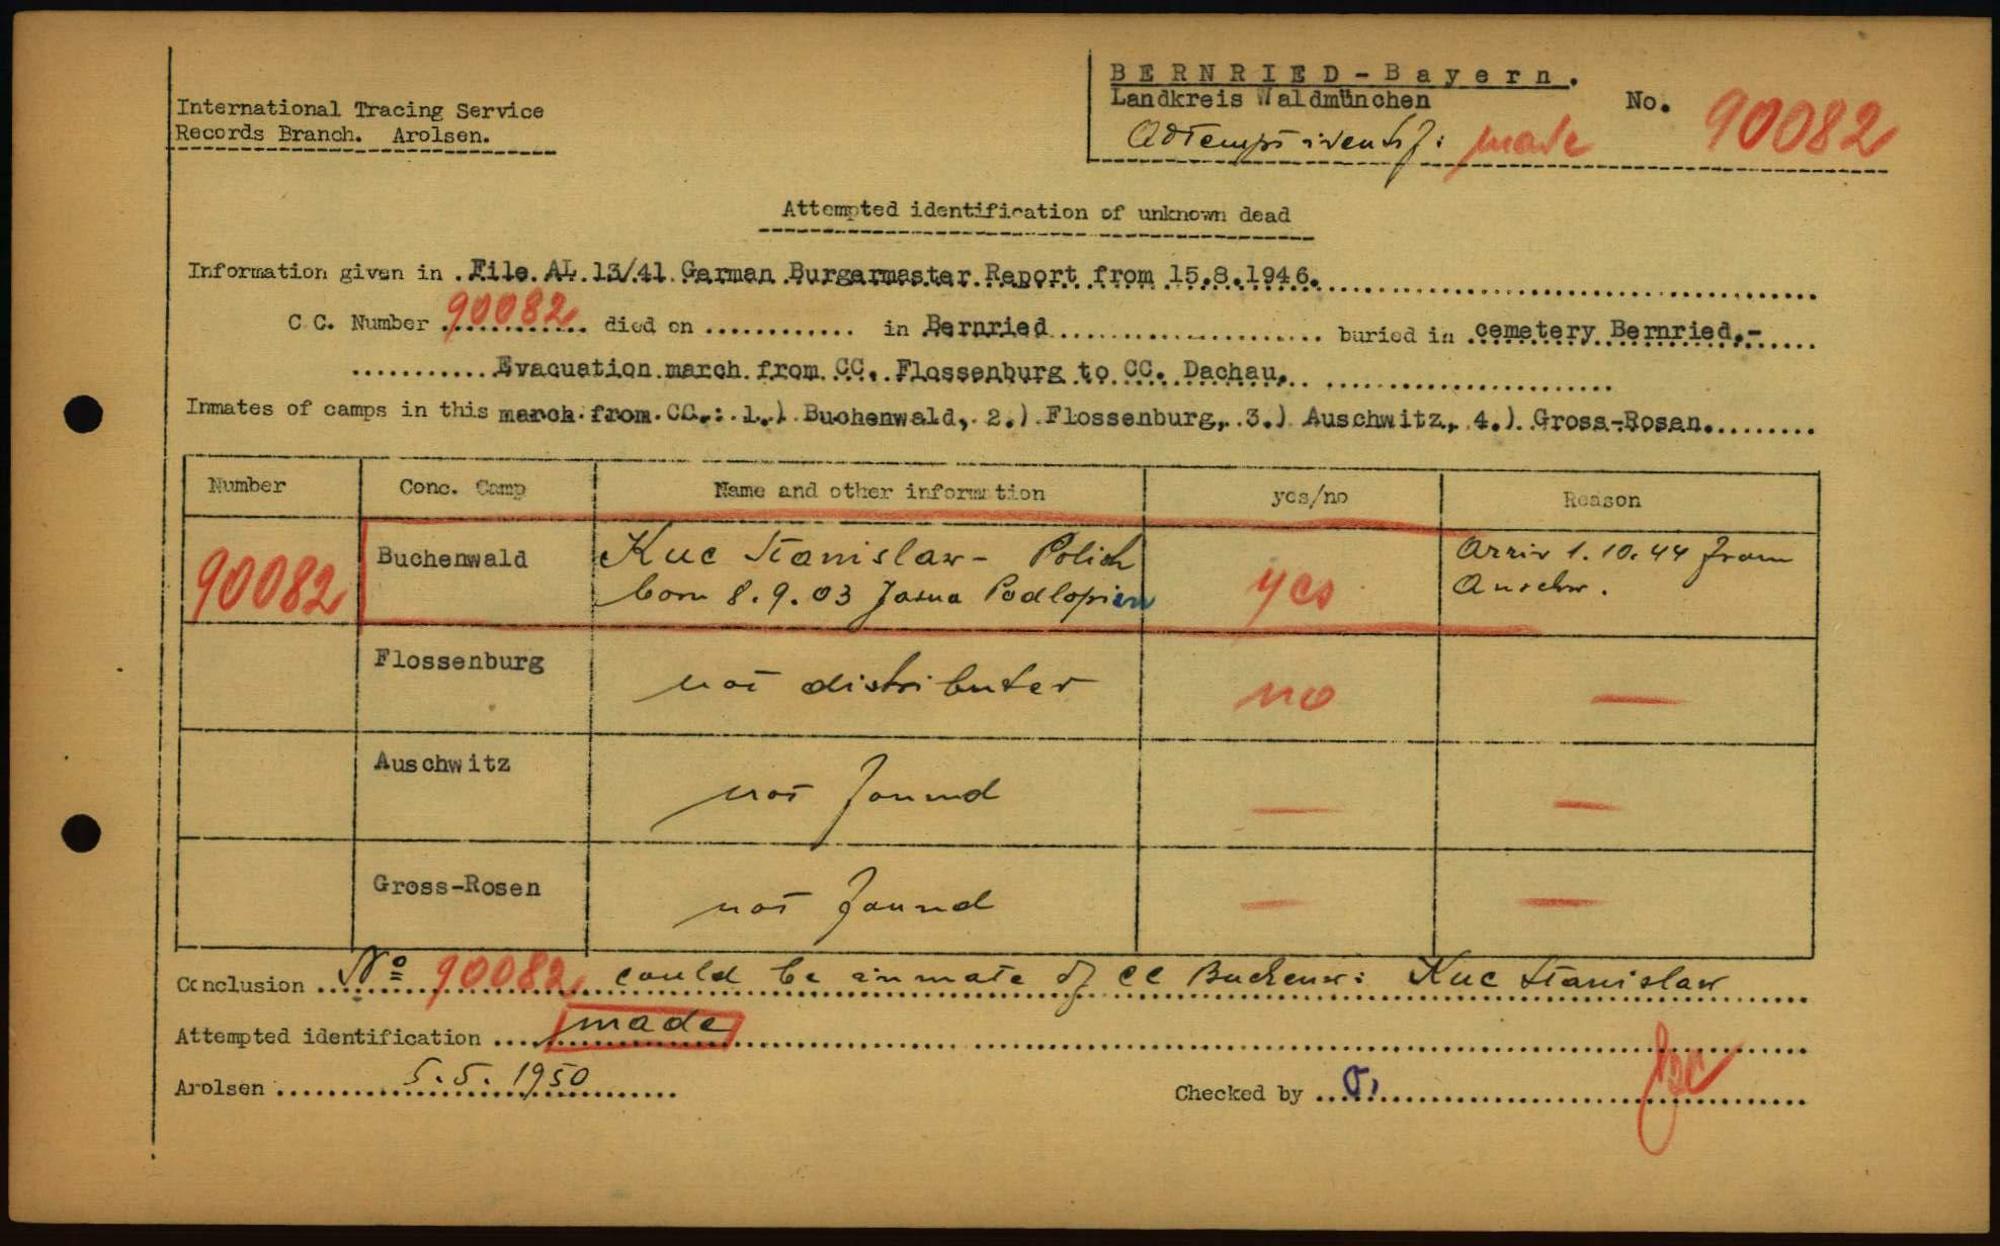 BERNRIED-Bayern.
International Tracing Service
Landkreis Waldmünchen No. 90082
Records Branch. Arolsen.
Attempt identif: made
Attempted identification of unknown dead
Information given in . File AL 13/41 German Burgermaster Report from 15.8.1946.
C C. Number 90082 died on ............ in Bernried ............ buried in cemetery Bernried.-
Evacuation march from CC. Flossenburg to CC. Dachau.
Inmates of camps in this march from CC.: 1.) Buchenwald, 2.) Flossenburg, 3.) Auschwitz, 4.) Gross-Rosen.
Number Conc. Camp Name and other information yes/no Reason
90082 Buchenwald Kuc Stanislaw - Polish yes Arriv 1.10.44 from
born 8.9.03 Jasna Podlopien Auschw.
Flossenburg not distributer no —
Auschwitz not found — —
Gross-Rosen not found — —
Conclusion No 90082 could be inmate of CC Buchenw: Kuc Stanislaw
Attempted identification made
Arolsen 5.5.1950 Checked by